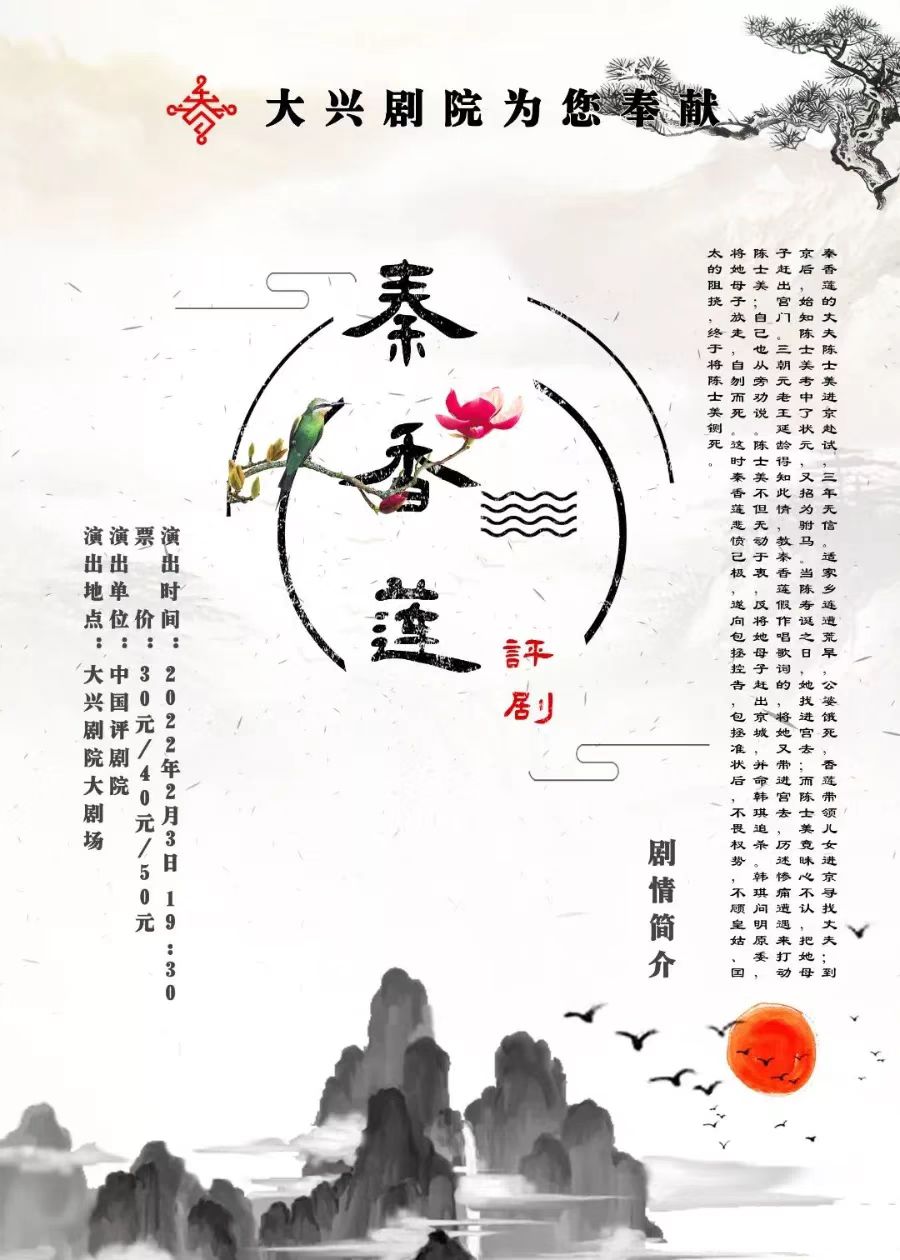 大兴剧院为您奉献
秦香莲
評剧
秦香莲的丈夫陈士美进京赴试，三年无信。适家乡连遭荒旱，公婆饿死，香莲带领儿女进京寻找丈夫；到
京后，始知陈士美考中了状元，又招为驸马。当陈寿诞之日，她找进宫去；而陈士美竟昧心不认，把她母
子赶出宫门。三朝元老王廷龄得知此情，教秦香莲假作唱歌词的，将她又带进宫去，历述惨痛遭遇来打动
陈士美；自己也从旁劝说。陈士美不但无动于衷，反将她母子赶出京城，并命韩琪追杀。韩琪问明原委，
将她母子放走，自刎而死。这时秦香莲悲愤已极，遂向包拯控告，包拯准状后，不畏权势，不顾皇姑、国
太的阻挠，终于将陈士美铡死。
剧情简介
演出时间：2022年2月3日 19:30
票 价：30元/40元/50元
演出单位：中国评剧院
演出地点：大兴剧院大剧场